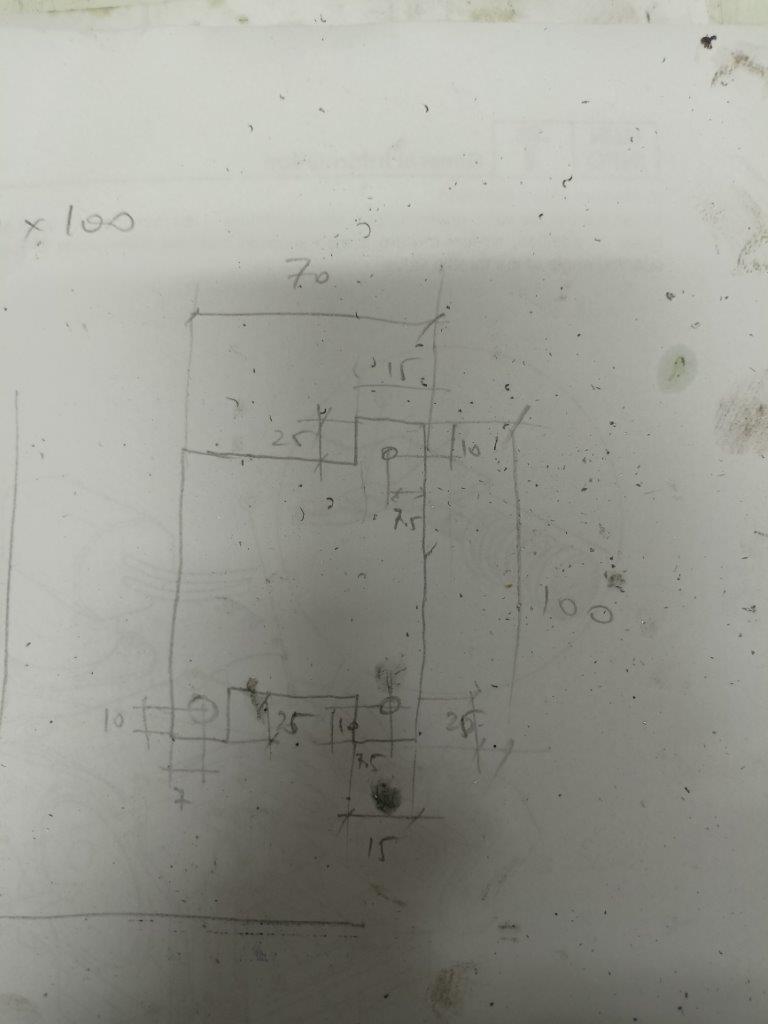 x 100
70
15
25
10
7.5
100
10
25
10
25
7.5
7
15